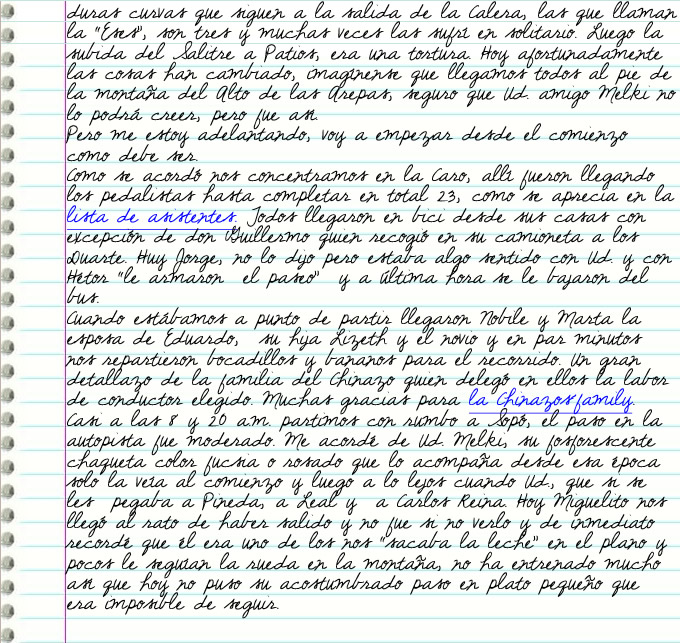 duras curvas que siguen a la salida de la Calera, las que llaman
la "Eses", son tres y muchas veces las sufrí en solitario. Luego la
subida del Salitre a Patios, era una tortura. Hoy afortunadamente
las cosas han cambiado, imagínense que llegamos todos al pie de
la montaña del Alto de las Arepas, seguro que Ud. amigo Melki no
lo podrá creer, pero fue así.
Pero me estoy adelantando, voy a empezar desde el comienzo
como debe ser.
Como se acordó nos concentramos en la Caro, allí fueron llegando
los pedalistas hasta completar en total 23, como se aprecia en la
lista de asistentes. Todos llegaron en bici desde sus casas con
excepción de don Guillermo quien recogió en su camioneta a los
Duarte. Huy Jorge, no lo dijo pero estaba algo sentido con Ud. y con
Hétor "le armaron el paseo" y a última hora se le bajaron del
bus.
Cuando estábamos a punto de partir llegaron Nobile y Marta la
esposa de Eduardo, su hija Lizeth y el novio y en par minutos
nos repartieron bocadillos y bananos para el recorrido. Un gran
detallazo de la familia del Chinazo quien delegó en ellos la labor
de conductor elegido. Muchas gracias para la Chinazosfamily.
Casi a las 8 y 20 a.m. partimos con rumbo a Sopó, el paso en la
autopista fue moderado. Me acordé de Ud. Melki, su fosforescente
chaqueta color fucsia o rosado que lo acompaña desde esa época
solo la veía al comienzo y luego a lo lejos cuando Ud., que si se
les pegaba a Pineda, a Leal y a Carlos Reina. Hoy Miguelito nos
llegó al rato de haber salido y no fue si no verlo y de inmediato
recordé que él era uno de los nos "sacaba la leche" en el plano y
pocos le seguían la rueda en la montaña, no ha entrenado mucho
así que hoy no puso su acostumbrado paso en plato pequeño que
era imposible de seguir.